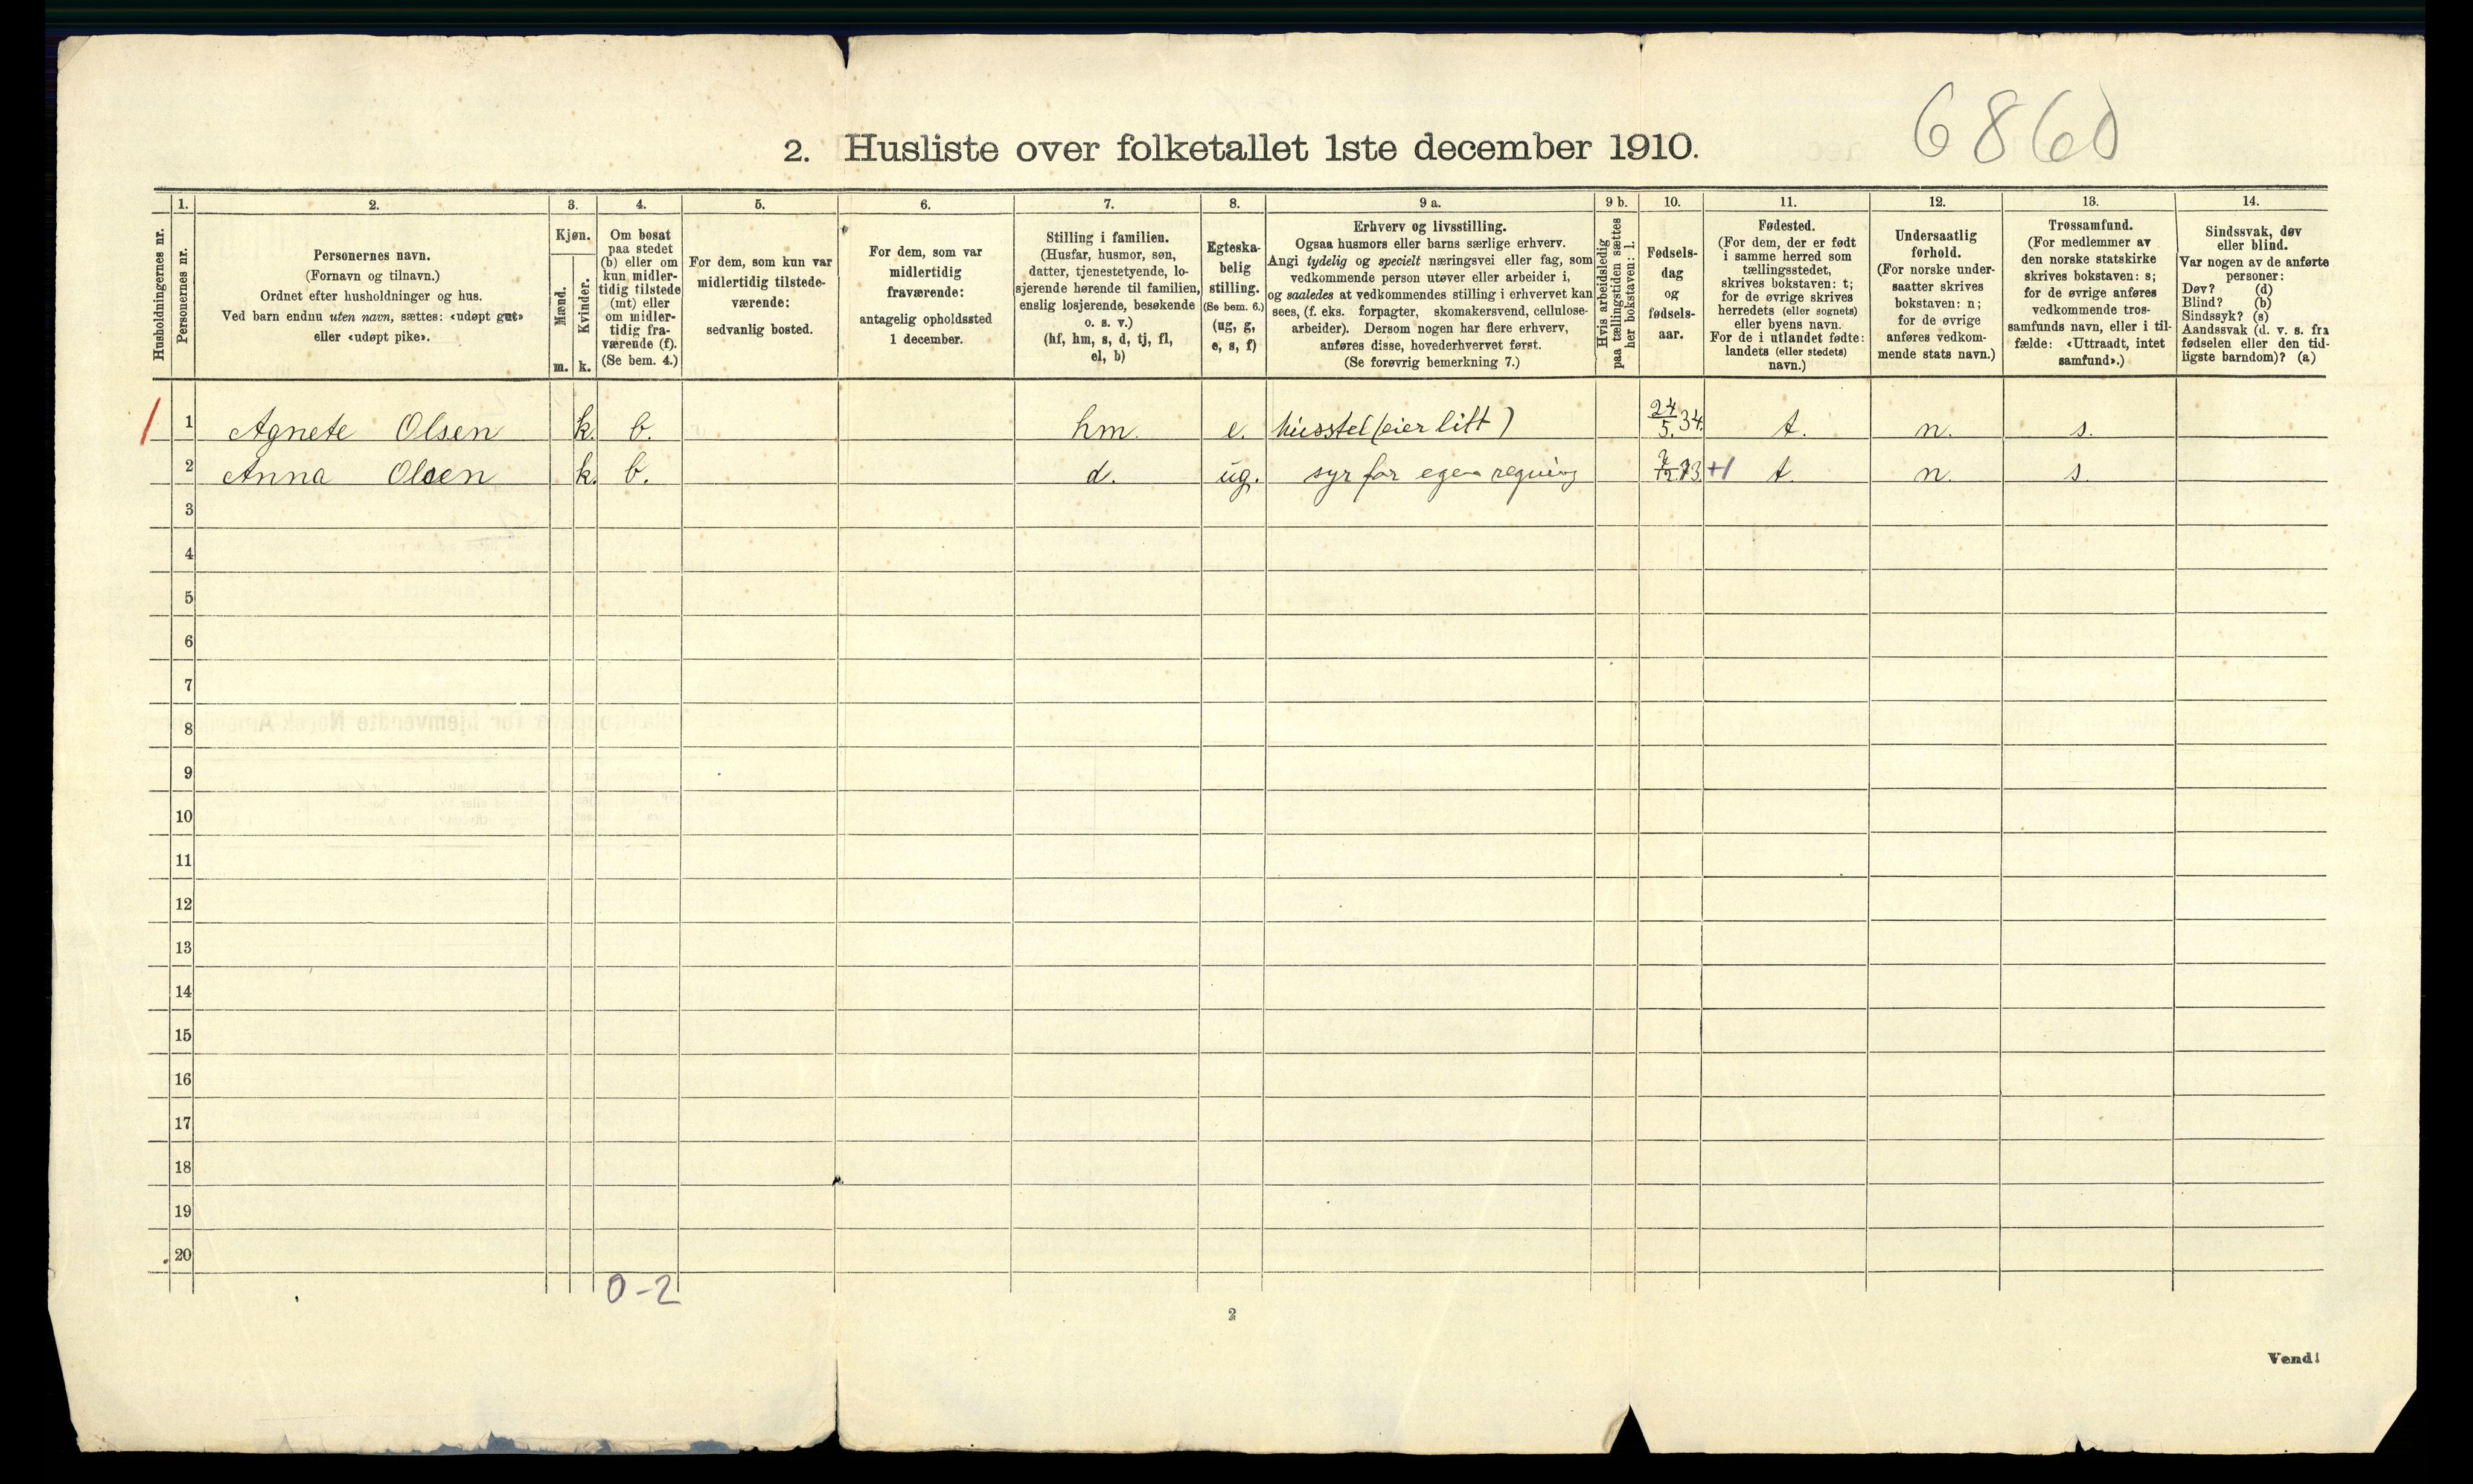 6860
2. Husliste over folketallet 1ste december 1910.
Husholdningernes nr.
1.
Personernes nr.
2.
Personernes navn.
(Fornavn og tilnavn.)
Ordnet efter husholdninger og hus.
Ved barn endnu uten navn, sættes: «udøpt gut»
eller «udøpt pike».
3.
Kjøn.
Mænd.
Kvinder.
m. k.
4.
Om bosat
paa stedet
(b) eller om
kun midler-
tidig tilstede
(mt) eller
om midler-
tidig fra-
værende (f).
(Se bem. 4.)
5.
For dem, som kun var
midlertidig tilstede-
værende:
sedvanlig bosted.
6.
For dem, som var
midlertidig
fraværende:
antagelig opholdssted
1 december.
7.
Stilling i familien.
(Husfar, husmor, søn,
datter, tjenestetyende, lo-
sjerende hørende til familien,
enslig losjerende, besøkende
o. s. v.)
(hf, hm, s, d, tj, fl,
el, b)
8.
Egteska-
belig
stilling.
(Se bem. 6.)
(ug, g,
e, s, f)
9 a.
Erhverv og livsstilling.
Ogsaa husmors eller barns særlige erhverv.
Angi tydelig og specielt næringsvei eller fag, som
vedkommende person utøver eller arbeider i,
og saaledes at vedkommendes stilling i erhvervet kan
sees, (f. eks. forpagter, skomakersvend, cellulose-
arbeider). Dersom nogen har flere erhverv,
anføres disse, hovederhvervet først.
(Se forøvrig bemerkning 7.)
9 b.
Hvis arbeidsledig
paa tællingstiden sættes
her bokstaven: l.
10.
Fødsels-
dag
og
fødsels-
aar.
11.
Fødested.
(For dem, der er født
i samme herred som
tællingsstedet,
skrives bokstaven: t;
for de øvrige skrives
herredets (eller sognets)
eller byens navn.
For de i utlandet fødte:
landets (eller stedets)
navn.)
12.
Undersaatlig
forhold.
(For norske under-
saatter skrives
bokstaven: n;
for de øvrige
anføres vedkom-
mende stats navn.)
13.
Trossamfund.
(For medlemmer av
den norske statskirke
skrives bokstaven: s;
for de øvrige anføres
vedkommende tros-
samfunds navn, eller i til-
fælde: «Uttraadt, intet
samfund».)
14.
Sindssvak, døv
eller blind.
Var nogen av de anførte
personer:
Døv? (d)
Blind? (b)
Sindssyk? (s)
Aandssvak (d. v. s. fra
fødselen eller den tid-
ligste barndom)? (a)
1 Agnete Olsen k. b. hm. e. husstel (eier litt) 24/5. 34. t. n. s.
2 Anna Olsen k. b. d. ug. syr for egen regning t. n. s.
3
4
5
6
7
8
9
10
11
12
13
14
15
16
17
18
19
20
0-2
2
Vend!